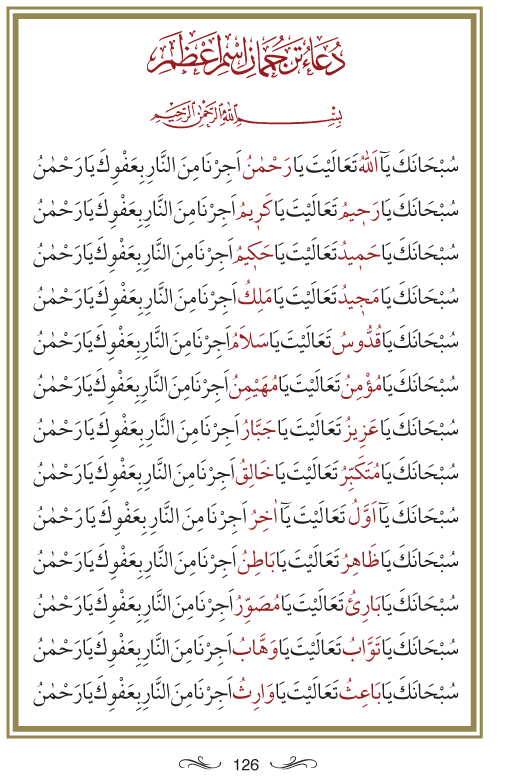 دُعَاءُ تَرْجُمَانِ اِسْمِ اَعْظَمْ
بِسْمِ اللّٰهِ الرَّحْمٰنِ الرَّحِيمِ
سُبْحَانَكَ يَآ اَللّٰهُ تَعَالَيْتَ يَا رَحْمٰنُ اَجِرْنَا مِنَ النَّارِ بِعَفْوِكَ يَا رَحْمٰنُ
سُبْحَانَكَ يَا رَحِيمُ تَعَالَيْتَ يَا كَرِيمُ اَجِرْنَا مِنَ النَّارِ بِعَفْوِكَ يَا رَحْمٰنُ
سُبْحَانَكَ يَا حَمِيدُ تَعَالَيْتَ يَا حَكِيمُ اَجِرْنَا مِنَ النَّارِ بِعَفْوِكَ يَا رَحْمٰنُ
سُبْحَانَكَ يَا مَجِيدُ تَعَالَيْتَ يَا مَلِكُ اَجِرْنَا مِنَ النَّارِ بِعَفْوِكَ يَا رَحْمٰنُ
سُبْحَانَكَ يَا قُدُّوسُ تَعَالَيْتَ يَا سَلَامُ اَجِرْنَا مِنَ النَّارِ بِعَفْوِكَ يَا رَحْمٰنُ
سُبْحَانَكَ يَا مُؤْمِنُ تَعَالَيْتَ يَا مُهَيْمِنُ اَجِرْنَا مِنَ النَّارِ بِعَفْوِكَ يَا رَحْمٰنُ
سُبْحَانَكَ يَا عَزِيزُ تَعَالَيْتَ يَا جَبَّارُ اَجِرْنَا مِنَ النَّارِ بِعَفْوِكَ يَا رَحْمٰنُ
سُبْحَانَكَ يَا مُتَكَبِّرُ تَعَالَيْتَ يَا خَالِقُ اَجِرْنَا مِنَ النَّارِ بِعَفْوِكَ يَا رَحْمٰنُ
سُبْحَانَكَ يَآ اَوَّلُ تَعَالَيْتَ يَآ اٰخِرُ اَجِرْنَا مِنَ النَّارِ بِعَفْوِكَ يَا رَحْمٰنُ
سُبْحَانَكَ يَا ظَاهِرُ تَعَالَيْتَ يَا بَاطِنُ اَجِرْنَا مِنَ النَّارِ بِعَفْوِكَ يَا رَحْمٰنُ
سُبْحَانَكَ يَا بَارِئُ تَعَالَيْتَ يَا مُصَوِّرُ اَجِرْنَا مِنَ النَّارِ بِعَفْوِكَ يَا رَحْمٰنُ
سُبْحَانَكَ يَا تَوَّابُ تَعَالَيْتَ يَا وَهَّابُ اَجِرْنَا مِنَ النَّارِ بِعَفْوِكَ يَا رَحْمٰنُ
سُبْحَانَكَ يَا بَاعِثُ تَعَالَيْتَ يَا وَارِثُ اَجِرْنَا مِنَ النَّارِ بِعَفْوِكَ يَا رَحْمٰنُ
126